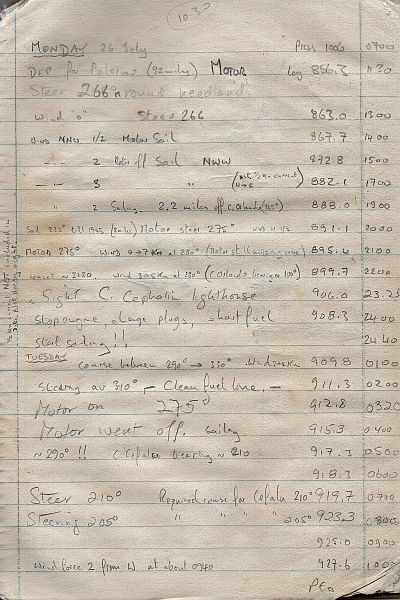 10.30
MONDAY 26 July Press 1006 0700
DEP for Palermo (92 miles) MOTOR Log 856.3 1130
Steer 266° round headland
Wind "0" Steer 266 863.0 1300
Wind NNW 1/2 Motor Sail 867.7 1400
" " 2 Motor off Sail NWW 872.8 1500
" " 3 " 882.1 1700
" 2 Sailing. 2.2 miles off C. Orlando 888.0 1900
Motor steer 275° 891.1 2000
Motor 275° 895.4 2100
~ 2020, (C. Orlando bearing 100°) 899.7 2200
Sight C. Cephalin lighthouse 906.0 23.25
Stop engine, change plugs, short fuel 908.3 2400
Start sailing!! 2440
TUESDAY
Course between 290° → 330° Wind 909.8 0100
Steering av 310°, – Clean fuel line, – 911.3 0200
Motor on 275° 912.8 0320
Motor went off. sailing 915.3 0400
~290° !! C. Cefalu bearing ~ 210 917.3 0500
918.3 0600
Steer 210° Required course for Cefalu 210° 919.7 0700
Steering 205° " " " " 205° 923.3 0800
925.0 0900
Wind force 2 from W at about 0940 927.6 1000